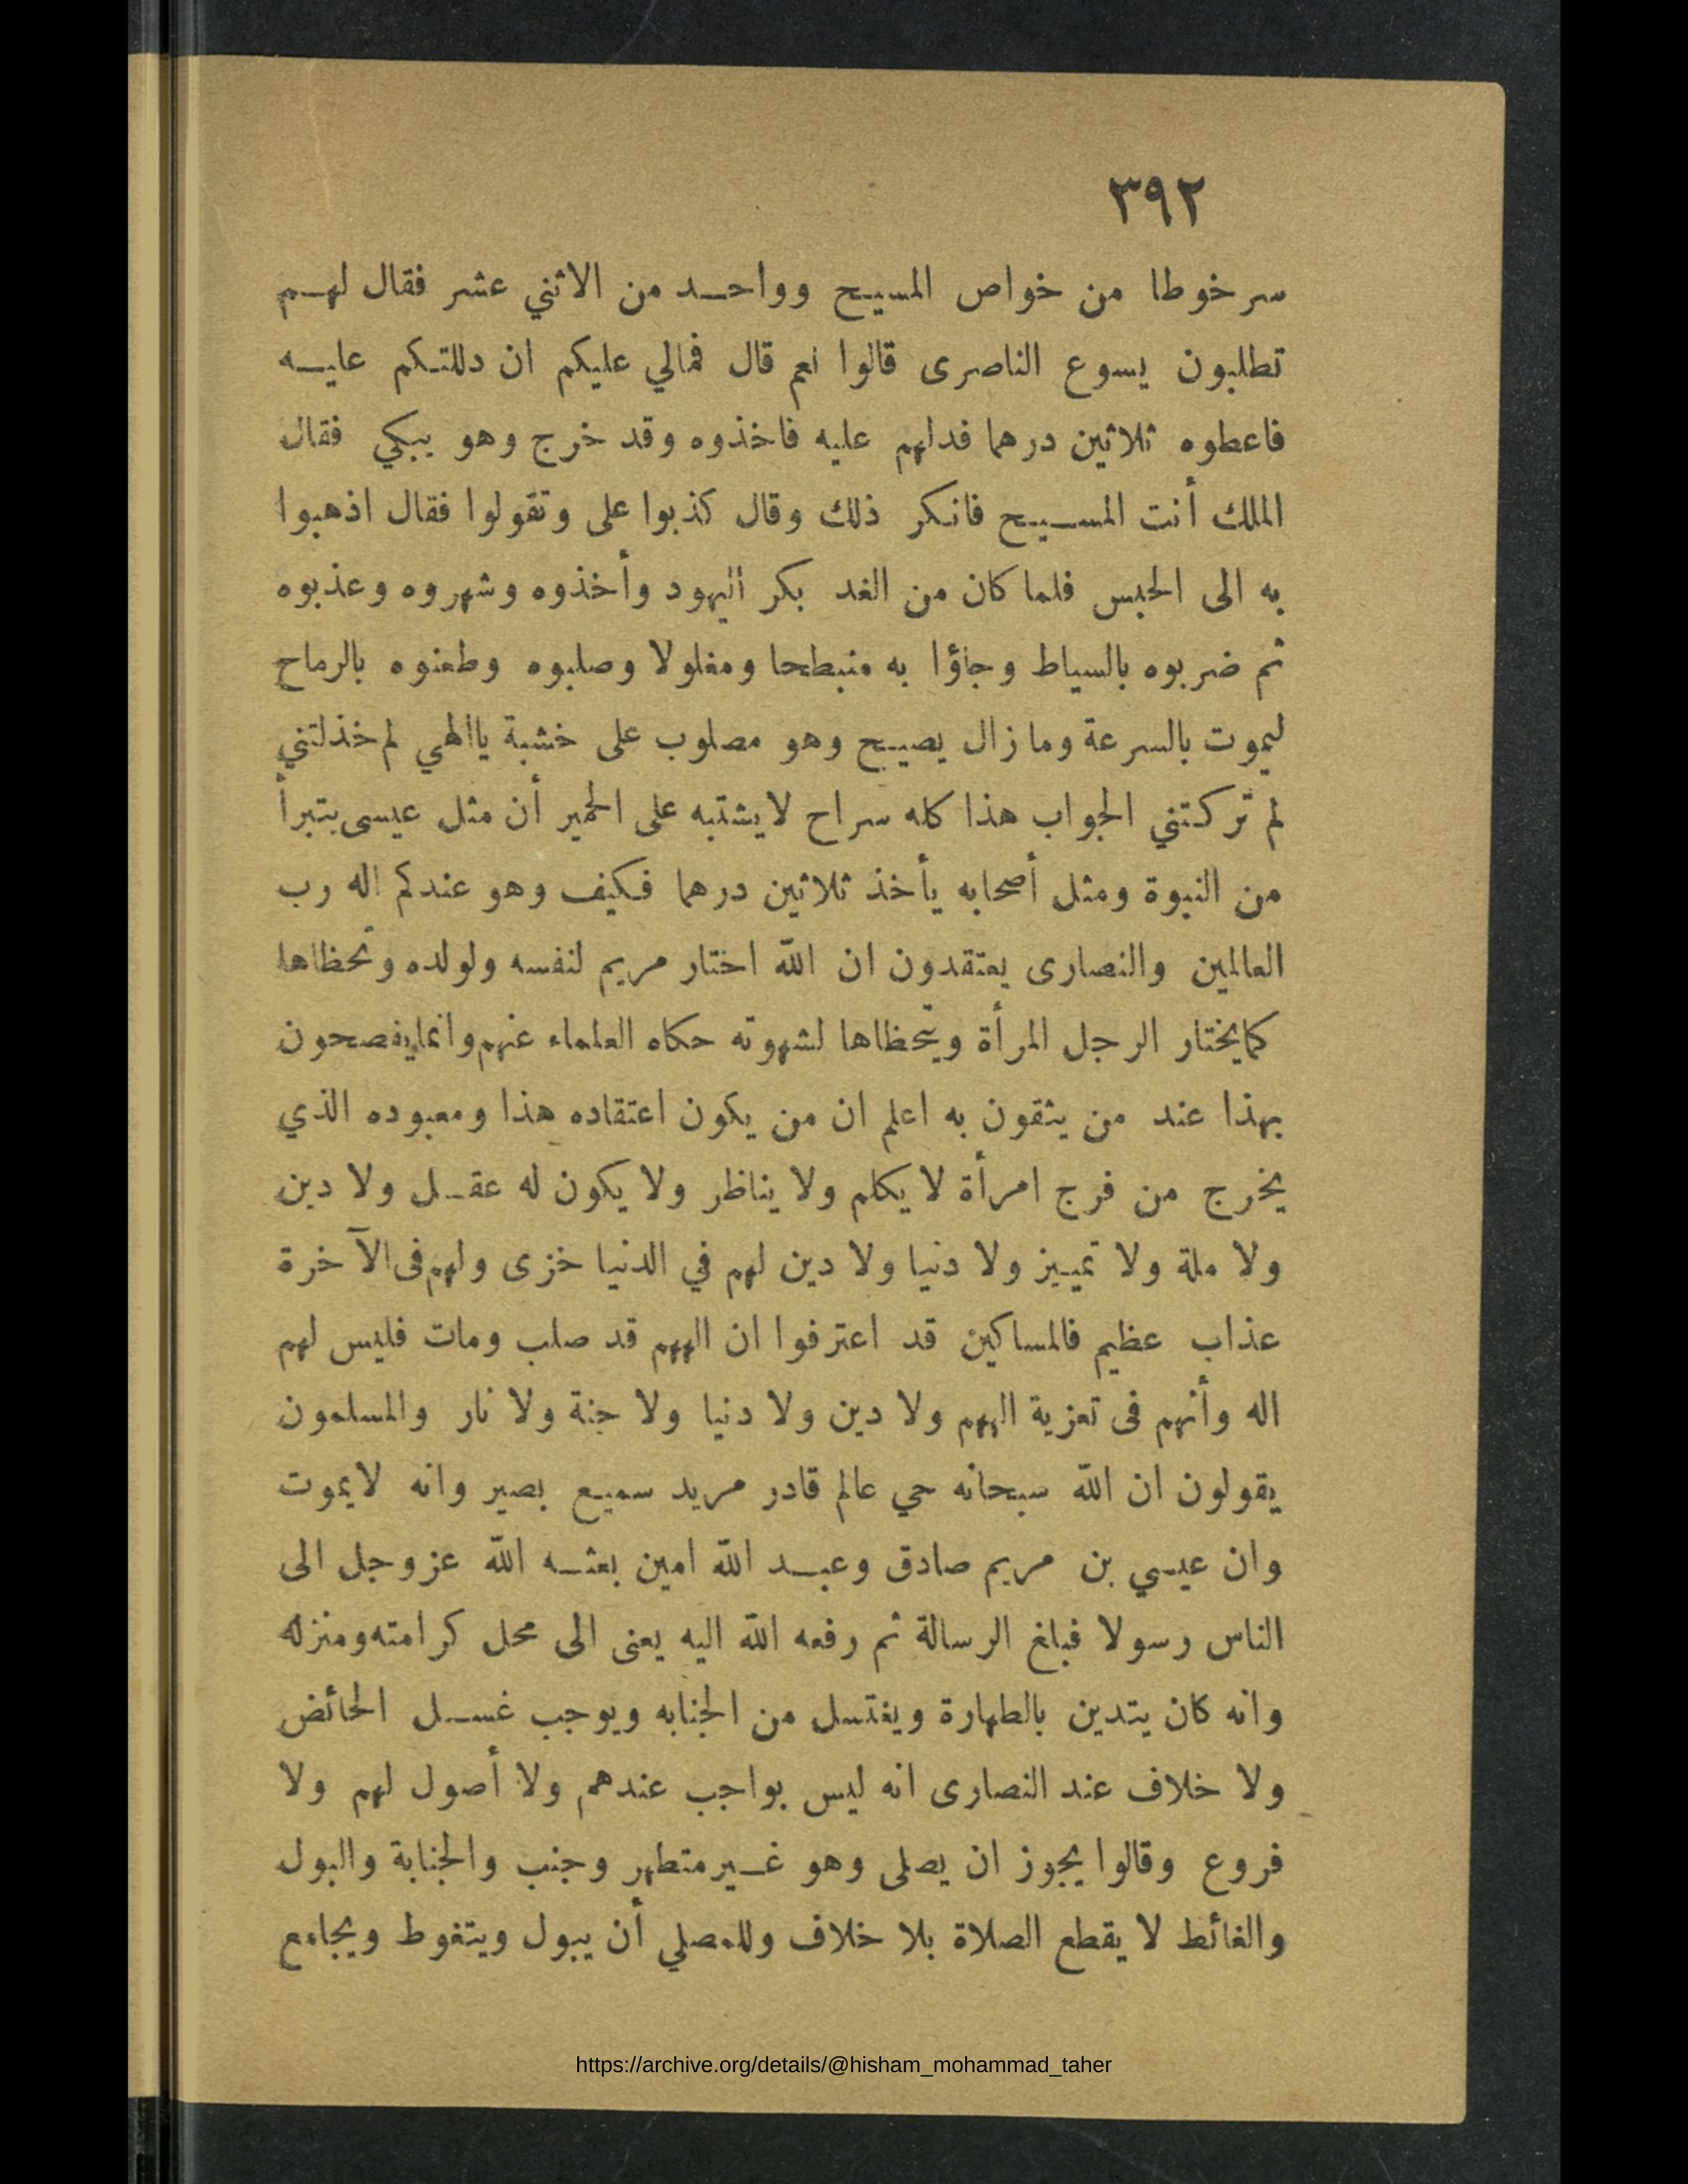 ٣٩٢
سرخوطا من خواص المسيح وواحد من الاثني عشر فقال لهم
تطلبون يسوع الناصرى قالوا نعم قال فمالي عليكم ان دللتكم عليه
فاعطوه ثلاثين درهما فدلهم عليه فاخذوه وقد خرج وهو يبكي فقال
الملك أنت المسيح فانكر ذلك وقال كذبوا على وتقولوا فقال اذهبوا
به الى الحبس فلما كان من الغد بكر اليهود وأخذوه وشهروه وعذبوه
ثم ضربوه بالسياط وجاؤا به منبطحا ومغلولا وصلبوه وطعنوه بالرماح
ليموت بالسرعة وما زال يصيح وهو مصلوب على خشبة ياالهي لم خذلتني
لم تركتني الجواب هذا كله سراح لايشتبه على الحمير أن مثل عيسى يتبرأ
من النبوة ومثل أصحابه يأخذ ثلاثين درهما فكيف وهو عندكم اله رب
العالمين والنصارى يعتقدون ان الله اختار مريم لنفسه ولولده وتحظاها
كمايختار الرجل المرأة ويتحظاها لشهوته حكاه العلماء عنهم وانمايفصحون
بهذا عند من يثقون به اعلم ان من يكون اعتقاده هذا ومعبوده الذي
يخرج من فرج امرأة لا يكلم ولا يناظر ولا يكون له عقل ولا دين
ولا ملة ولا تمييز ولا دنيا ولا دين لهم في الدنيا خزى ولهم فى الآخرة
عذاب عظيم فالمساكين قد اعترفوا ان الههم قد صلب ومات فليس لهم
اله وأنهم فى تعزية الههم ولا دين ولا دنيا ولا جنة ولا نار والمسلمون
يقولون ان الله سبحانه حي عالم قادر مريد سميع بصير وانه لايموت
وان عيسي بن مريم صادق وعبد الله امين بعثه الله عز وجل الى
الناس رسولا فبلغ الرسالة ثم رفعه الله اليه يعنى الى محل كرامته ومنزله
وانه كان يتدين بالطهارة ويغتسل من الجنابه ويوجب غسل الحائض
ولا خلاف عند النصارى انه ليس بواجب عندهم ولا أصول لهم ولا
فروع وقالوا يجوز ان يصلى وهو غير متطهر وجنب والجنابة والبول
والغائط لا يقطع الصلاة بلا خلاف وللمصلي أن يبول ويتغوط ويجامع
https://archive.org/details/@hisham_mohammad_taher